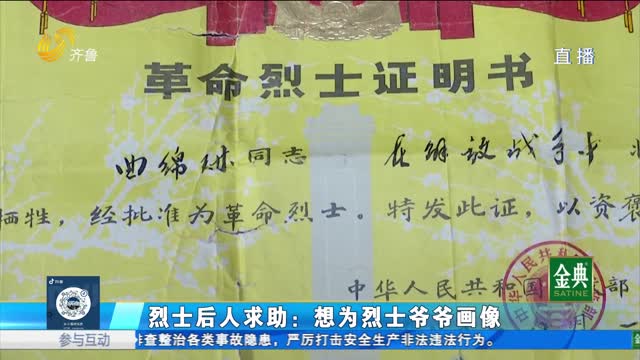 齐鲁
直播
革命烈士证明书
曲绵琳同志 在解放战争中壮
牺牲，经批准为革命烈士。特发此证，以资褒
中华人民共和国 部
金典
SATINE
烈士后人求助：想为烈士爷爷画像
参与互动
查整治各类事故隐患，严厉打击安全生产非法违法行为。